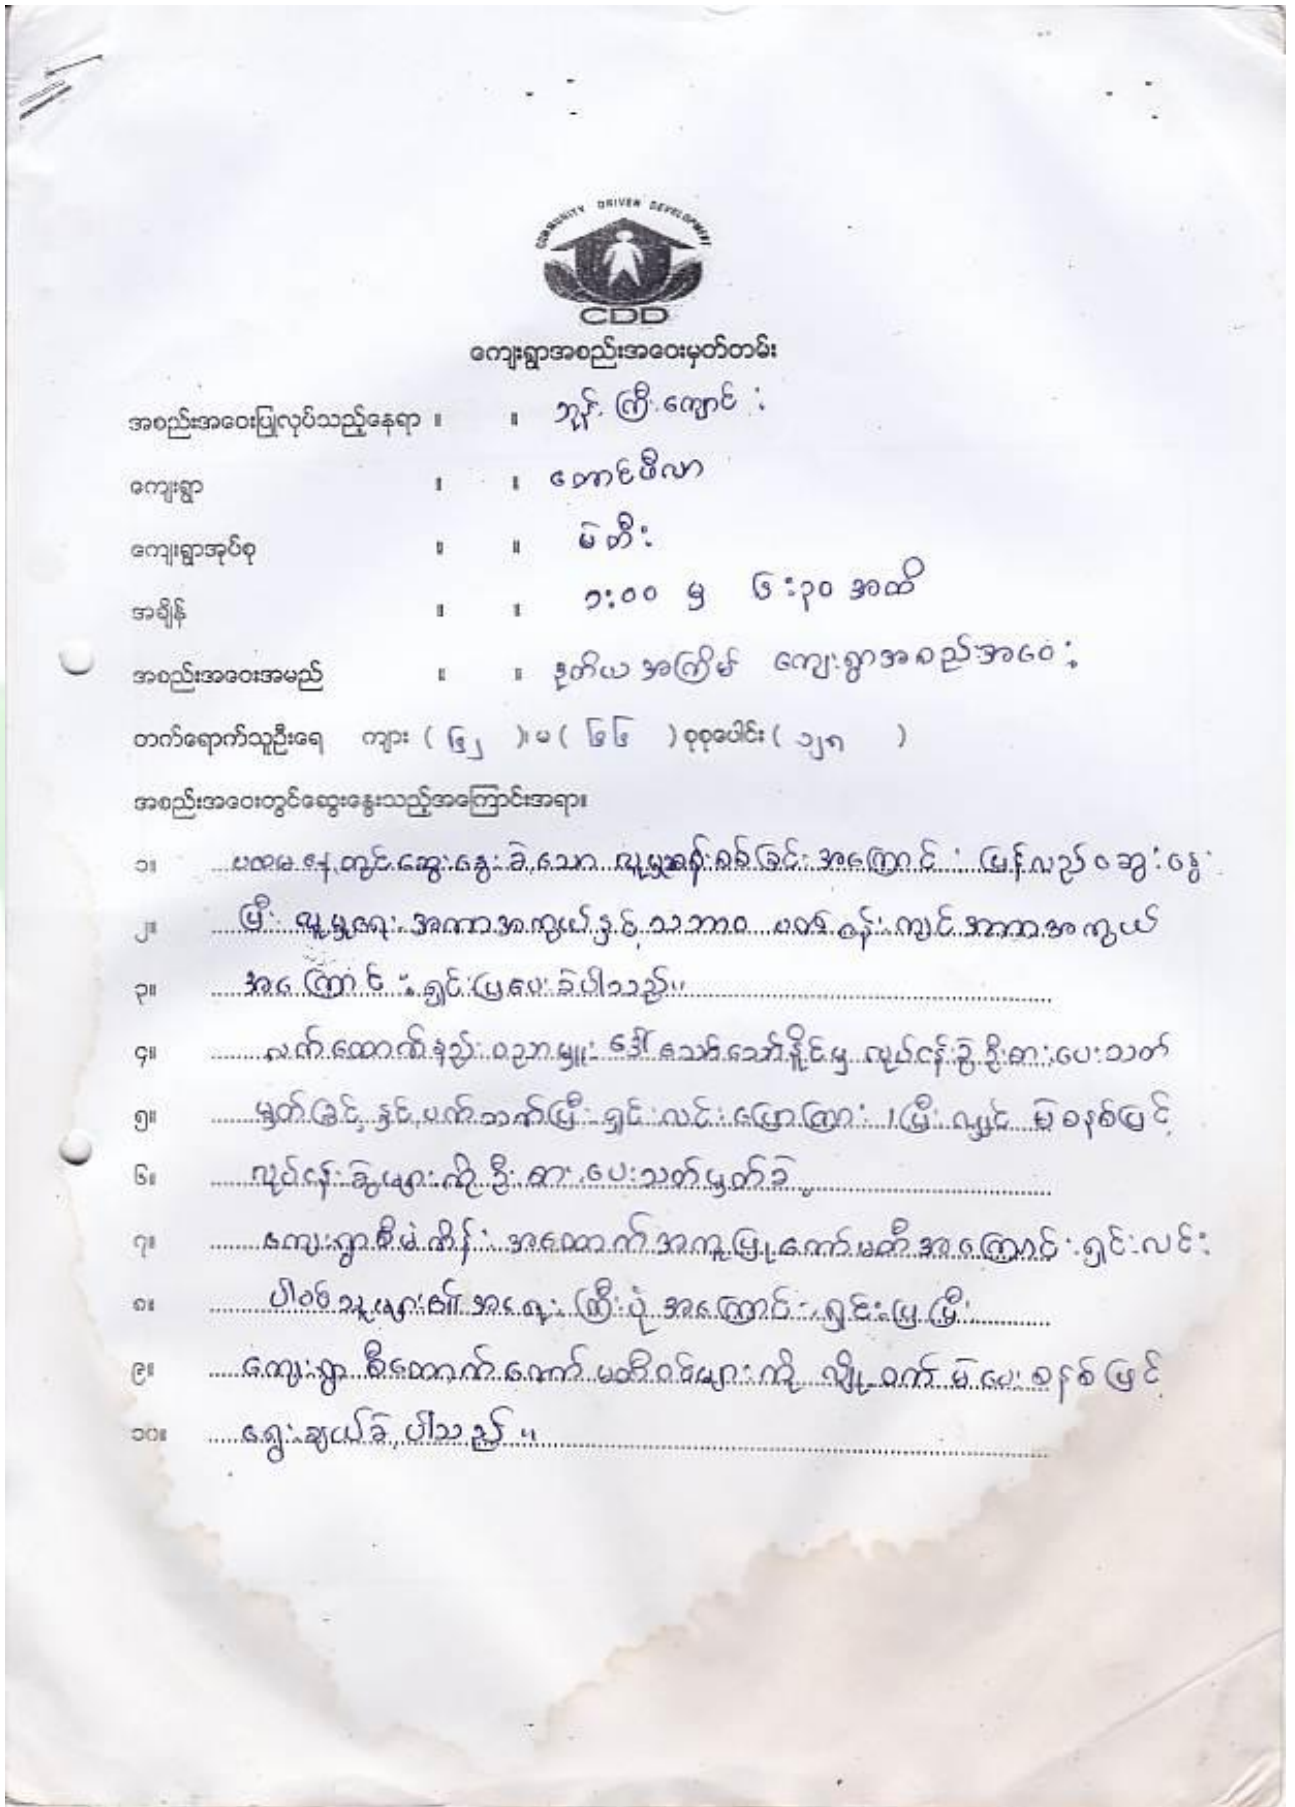 COMMUNITY DRIVEN DEVELOPMENT
CDD
ကျေးရွာအစည်းအဝေးမှတ်တမ်း
အစည်းအဝေးပြုလုပ်သည့်နေရာ ။ ။ ဘုန်းကြီးကျောင်း
ကျေးရွာ ။ ။ တောင်ဖီလာ
ကျေးရွာအုပ်စု ။ ။ မဲတီး
အချိန် ။ ။ ၁:၀၀ မှ ၆:၃၀ အထိ
အစည်းအဝေးအမည် ။ ။ ဒုတိယအကြိမ် ကျေးရွာအစည်းအဝေး
တက်ရောက်သူဦးရေ ကျား ( ၆၂ )၊ မ ( ၆၆ ) စုစုပေါင်း ( ၁၂၈ )
အစည်းအဝေးတွင်ဆွေးနွေးသည့်အကြောင်းအရာ။
၁။ ပထမနေ့တွင်ဆွေးနွေးခဲ့သော လူမှုဆန်းစစ်ခြင်းအကြောင်း ပြန်လည်ဆွေးနွေး
၂။ ပြီး လူမှုရေးအကာအကွယ်နှင့် သဘာဝ ပတ်ဝန်းကျင်အကာအကွယ်
၃။ အကြောင်း ရှင်းပြပေးခဲ့ပါသည်။
၄။ လက်ထောက်နည်းပညာမှူး ဒေါ်သော်သော်နိုင်မှ လုပ်ငန်းခွဲဦးစားပေးသတ်
၅။ မှတ်ခြင်းနှင့်ပက်သက်ပြီး ရှင်းလင်းပြောကြား၊ ပြီးလျှင် မဲစနစ်ဖြင့်
၆။ လုပ်ငန်းခွဲများကို ဦးစားပေးသတ်မှတ်ခဲ့
၇။ ကျေးရွာစီမံကိန်း အထောက်အကူပြုကော်မတီအကြောင်း ရှင်းလင်း
၈။ ပါဝင်သူများ၏ အရေးကြီးပုံ အကြောင်း ရှင်းပြပြီး
၉။ ကျေးရွာ စီထောက်ကော်မတီဝင်များကို လျှို့ဝှက်မဲပေးစနစ်ဖြင့်
၁၀။ ရွေးချယ်ခဲ့ပါသည်။